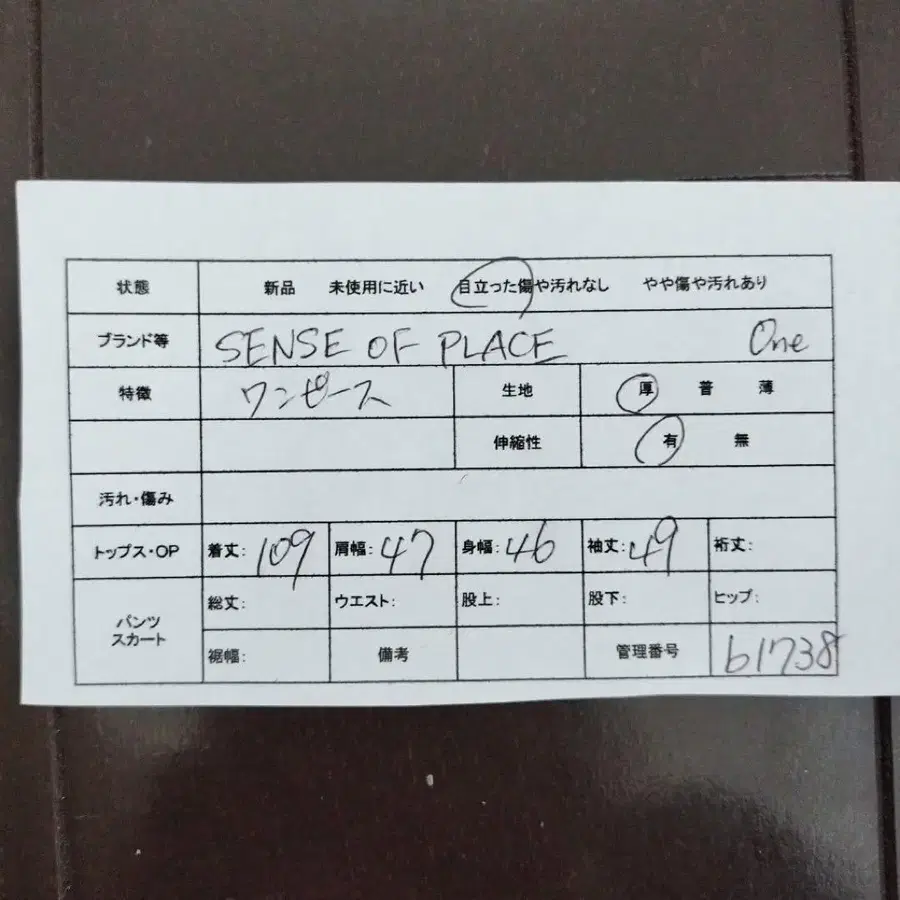 状態 新品 未使用に近い 目立った傷や汚れなし やや傷や汚れあり
ブランド等 SENSE OF PLACE One
特徴 ワンピース 生地 厚 普 薄
伸縮性 有 無
汚れ・傷み
トップス・OP 着丈: 109 肩幅: 47 身幅: 46 袖丈: 49 裄丈:
パンツ スカート 総丈: ウエスト: 股上: 股下: ヒップ:
裾幅: 備考 管理番号 b1738